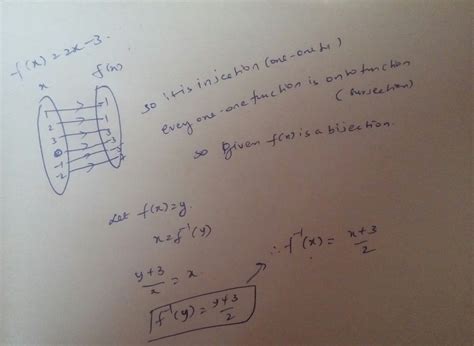 f(x) = 2x-3.
x f(x)
1
2
3
0
-1
-2
so it is injection (one-one fn)
every one-one function is onto function
(surjection)
so given f(x) is a bijection.
Let f(x)=y.
x=f⁻¹(y)
y+3/x = x
f⁻¹(y) = y+3/2
∴ f⁻¹(x) = x+3/2